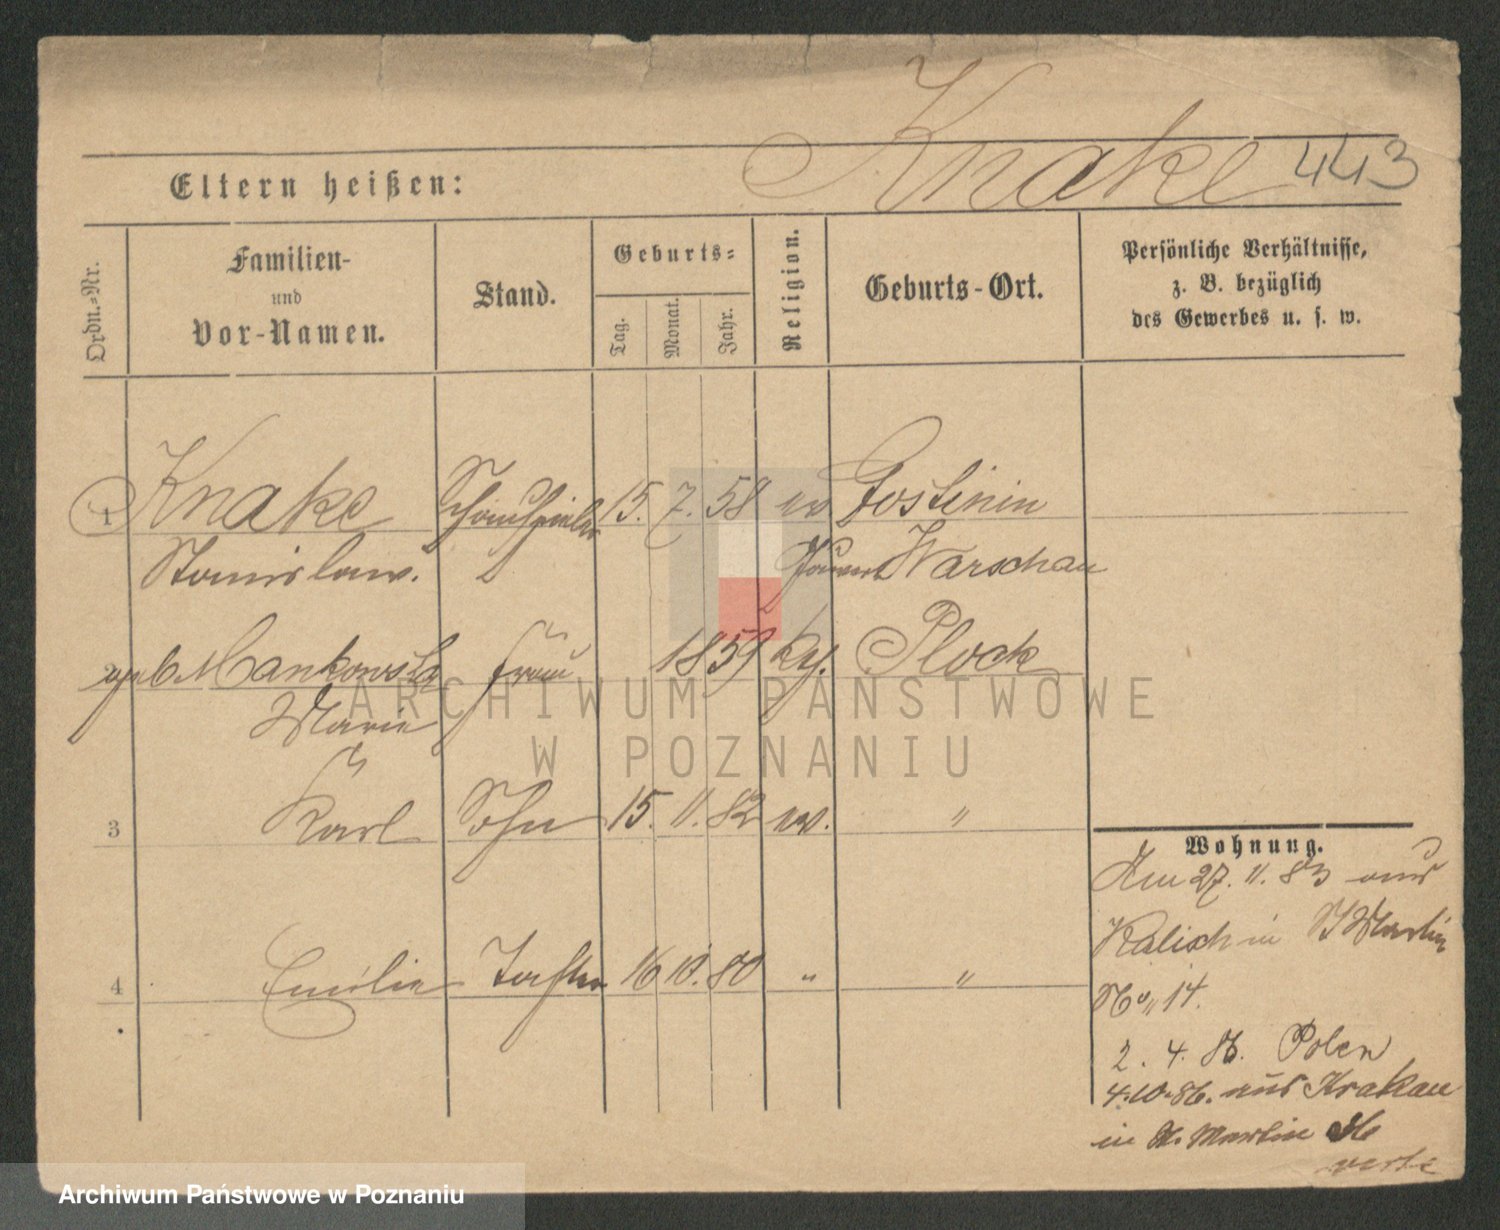 Knake 443
Eltern heißen:
Ordn.-Nr.
Familien-
und
Vor-Namen.
Stand.
Geburts-
Tag.
Monat.
Jahr.
Religion.
Geburts-Ort.
Persönliche Verhältnisse,
z. B. bezüglich
des Gewerbes u. s. w.
1 Knake Schauspieler 15. 7. 58 ev Gostinin
Stanislaw. Warschau
geb Mankowska Frau 1859 Plock
Marie
3 Karl Sohn 15. 11. 82 ev. "
4 Emilie Tochter 16 10. 80 " "
Wohnung.
Am 27. 11. 83 aus
Kalisch in St Martin
No 14.
2. 4. 86. Polen
4.10.86. aus Krakau
in St. Martin
verte
ARCHIWUM PAŃSTWOWE
W POZNANIU
Archiwum Państwowe w Poznaniu